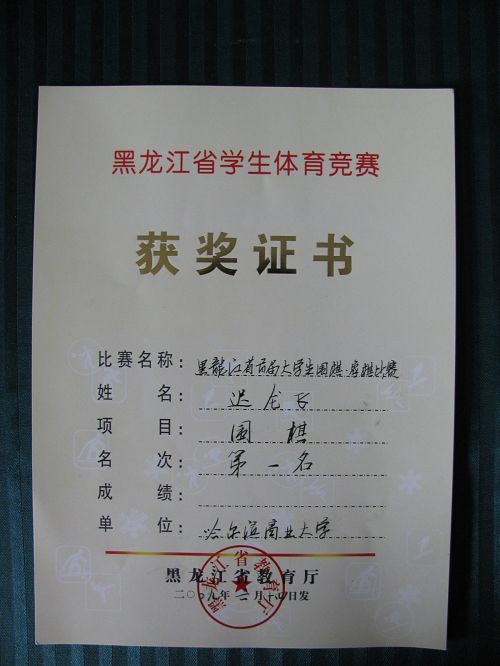 黑龙江省学生体育竞赛
获奖证书
比赛名称：黑龍江省首届大学生围棋、
姓名：迟
项目：围棋
名次：第一名
成绩：
单位：哈尔滨商业大学
黑龙江省教育厅
二〇〇九年 月十 日发
黑龙江省教育厅